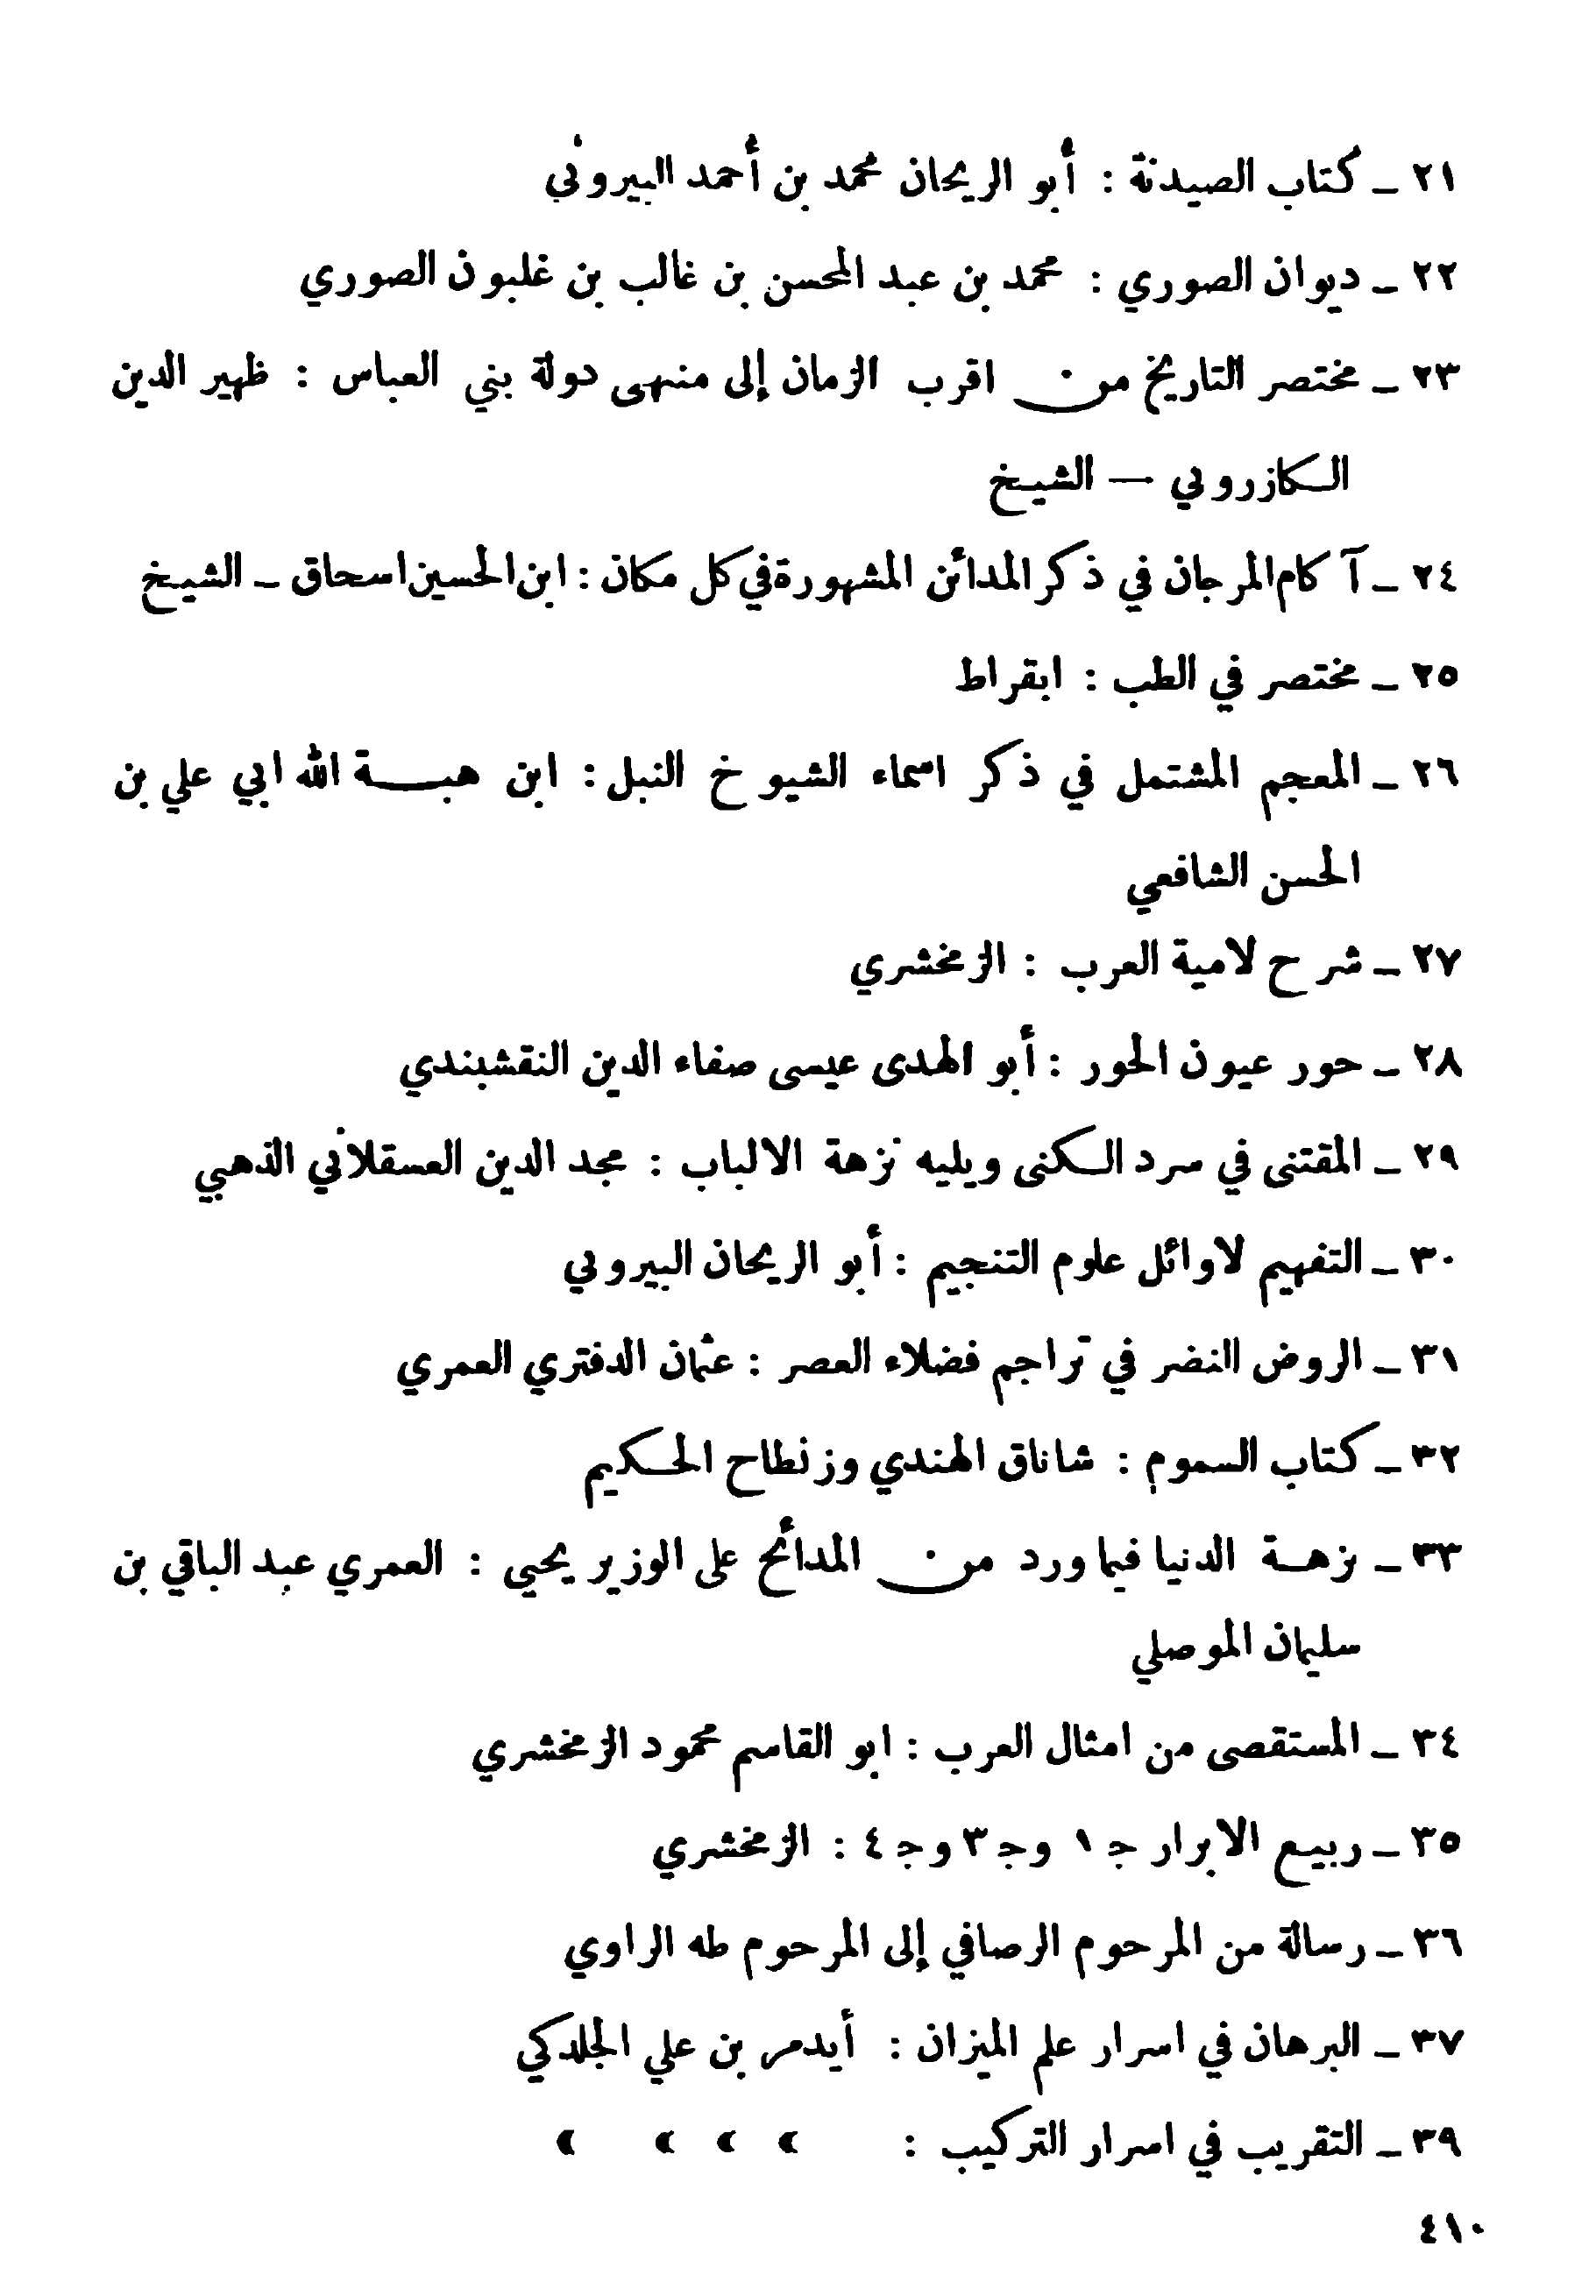 ٢١ – كتاب الصيدنة : أبو الريحان محمد بن أحمد البيروني
٢٢ – ديوان الصوري : محمد بن عبد المحسن بن غالب بن غلبون الصوري
٢٣ – مختصر التاريخ من اقرب الزمان إلى منهى دولة بني العباس : ظهير الدين
الكازروني — الشيخ
٢٤ – آكام المرجان في ذكر المدائن المشهورة في كل مكان : ابن الحسين اسحاق – الشيخ
٢٥ – مختصر في الطب : ابقراط
٢٦ – المعجم المشتمل في ذكر اسماء الشيوخ النبل : ابن هبة الله ابي علي بن
الحسن الشافعي
٢٧ – شرح لامية العرب : الزمخشري
٢٨ – حور عيون الحور : أبو الهدى عيسى صفاء الدين النقشبندي
٢٩ – المقتنى في سرد الكنى ويليه نزهة الالباب : مجد الدين العسقلاني الذهبي
٣٠ – التفهيم لاوائل علوم التنجيم : أبو الريحان البيروني
٣١ – الروض النضر في تراجم فضلاء العصر : عثمان الدفتري العمري
٣٢ – كتاب السموم : شاناق الهندي وزنطاح الحكيم
٣٣ – نزهة الدنيا فيما ورد من المدائح على الوزير يحيى : العمري عبد الباقي بن
سليمان الموصلي
٣٤ – المستقصى من امثال العرب : ابو القاسم محمود الزمخشري
٣٥ – ربيع الابرار ج ١ وج ٣ وج ٤ : الزمخشري
٣٦ – رسالة من المرحوم الرصافي إلى المرحوم طه الراوي
٣٧ – البرهان في اسرار علم الميزان : أيدمر بن علي الجلدكي
٣٩ – التقريب في اسرار التركيب : » » » »
٤١٠